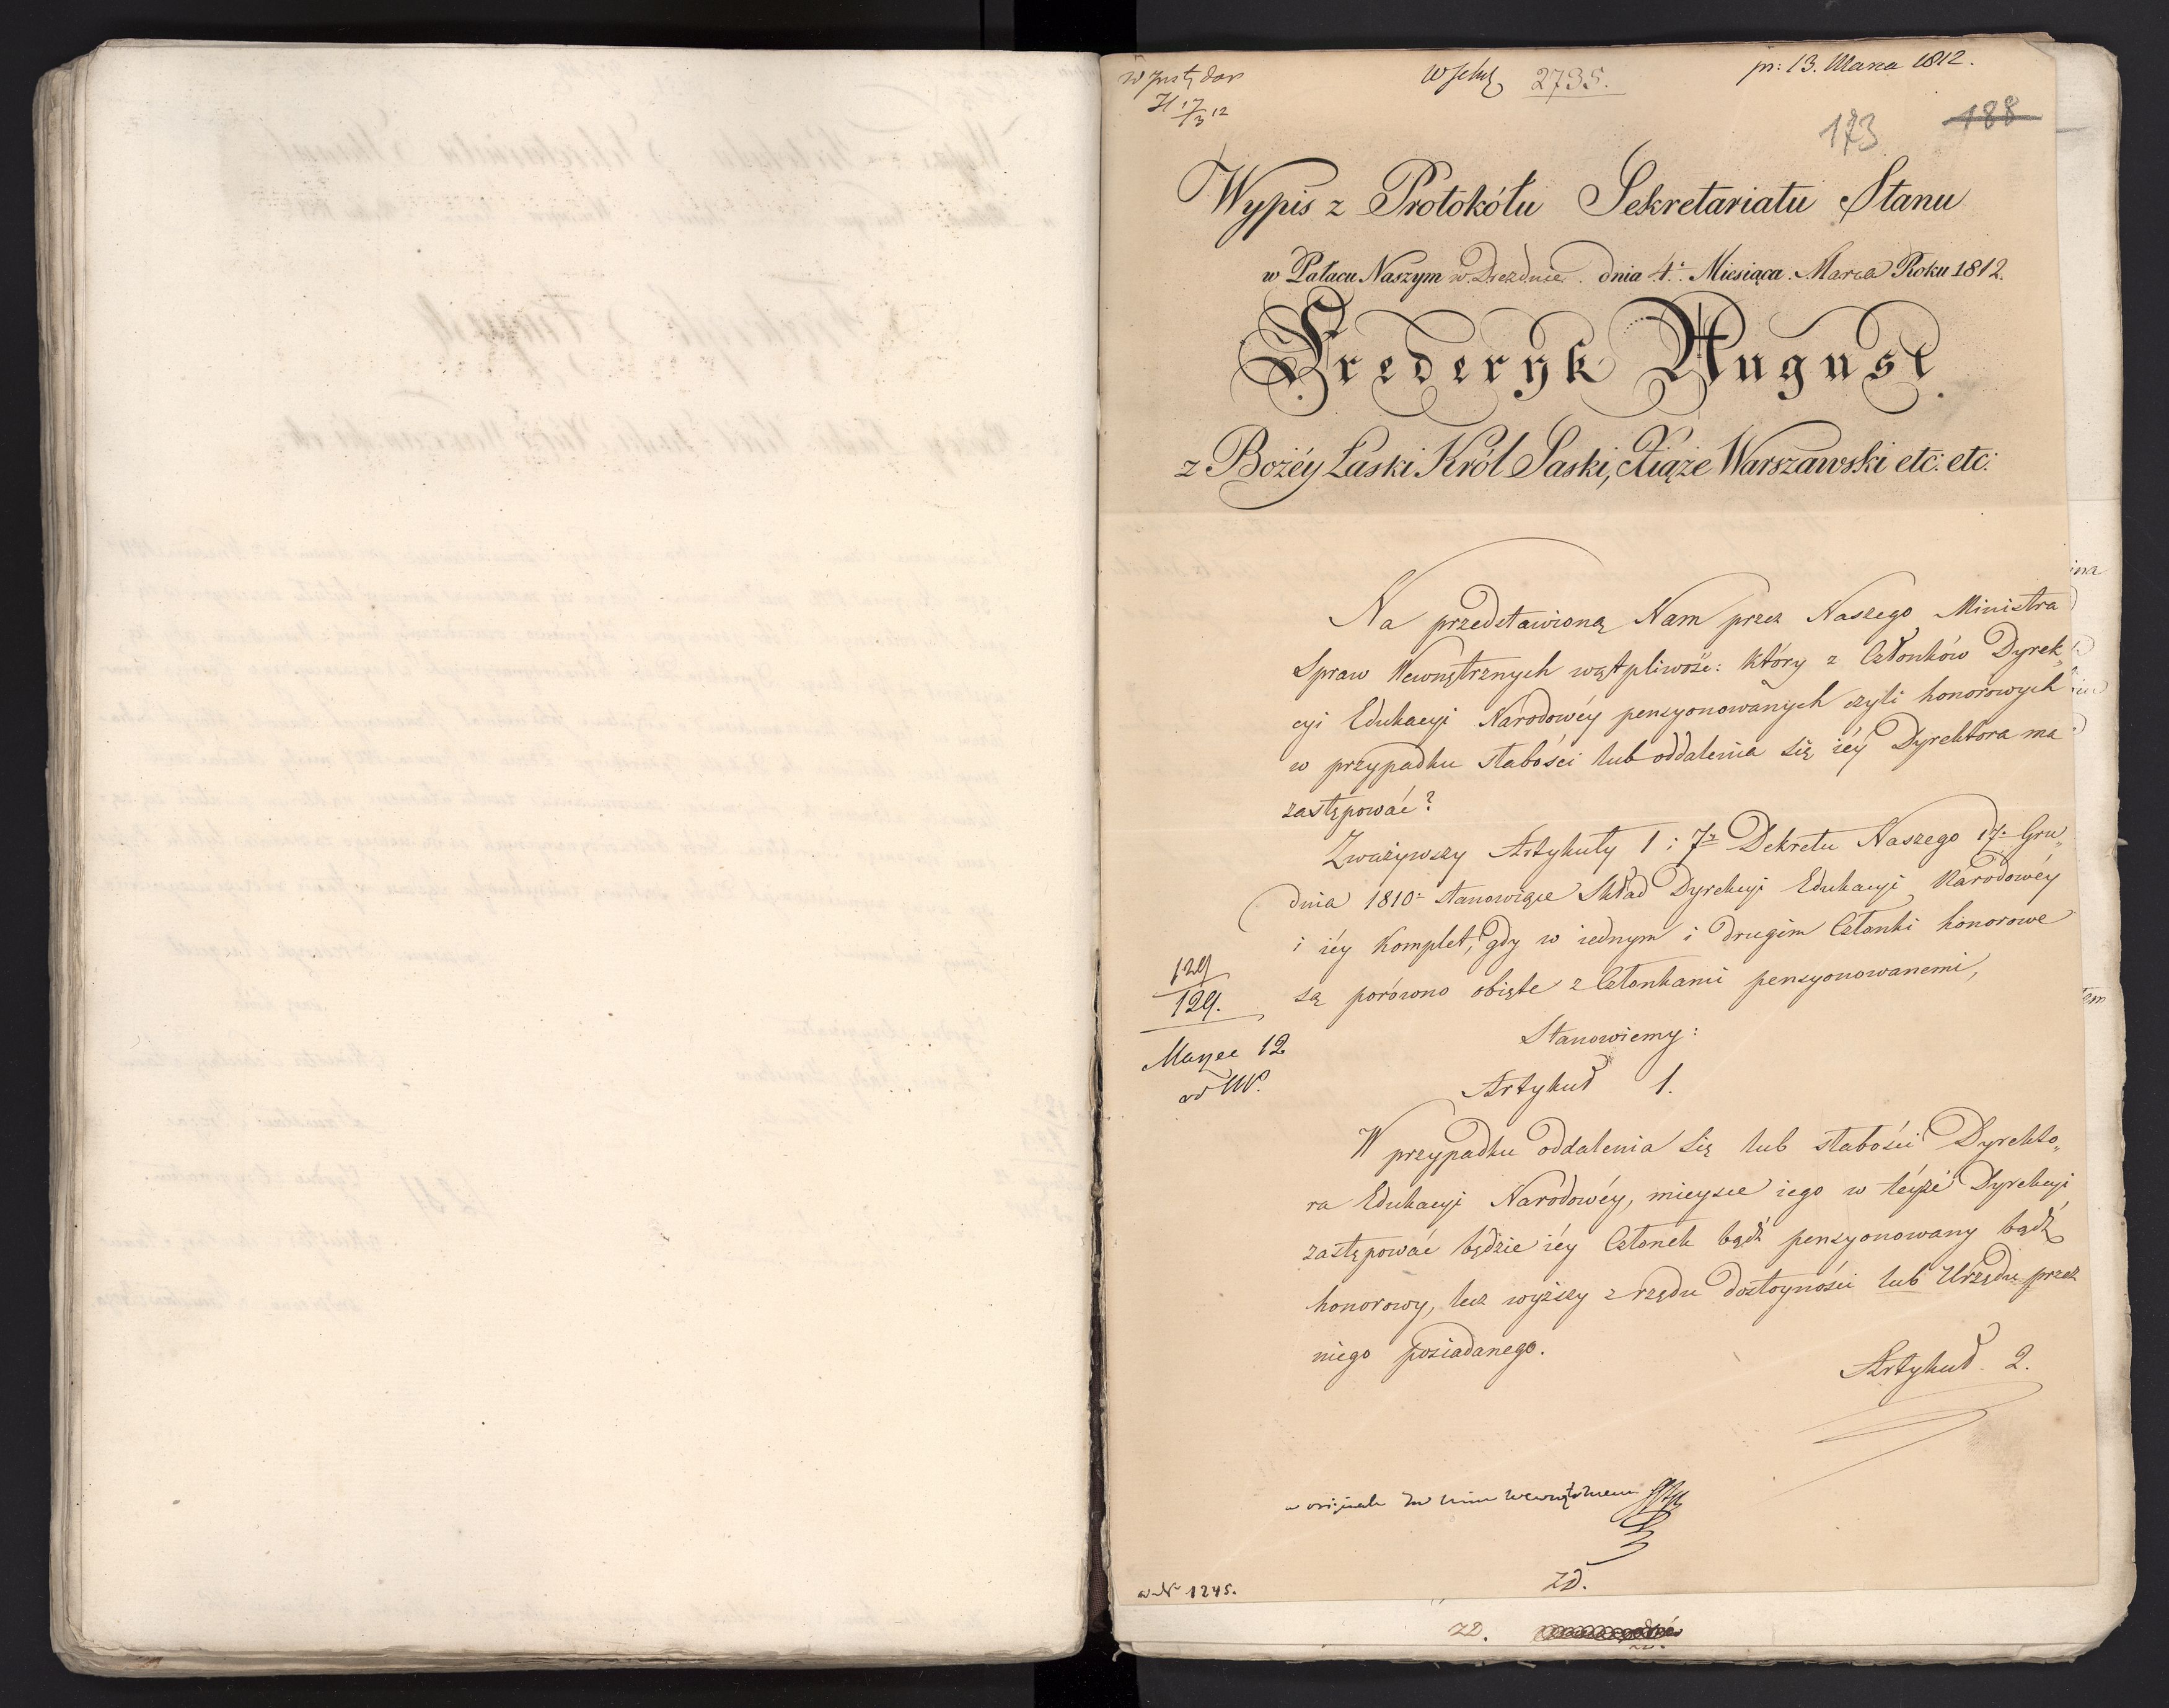 2735.
pr: 13. Marca 1812.
173 188
Wypis z Protokółu Sekretariatu Stanu
w Pałacu Naszym w Dreznie dnia 4. Miesiąca Marca Roku 1812.
Frederyk August
z Bożéy Łaski Król Saski, Xiąże Warszawski etc: etc:
Na przedstawioną Nam przez Naszego Ministra
Spraw Wewnętrznych wątpliwość: który z Członków Dyrek„
cyi Edukacyi Narodowéy pensyonowanych czyli honorowych
w przypadku słabości lub oddalenia się iéy Dyrektora ma
zastępować?
Zważywszy Artykuły 1 i 7. Dekretu Naszego 17. Gru„
dnia 1810. stanowiące Skład Dyrekcyi Edukacyi Narodowéy
i iéy Komplet, gdy w iednym i drugim Członki honorowe
są porówno obięte z Członkami pensyonowanemi,
129
129.
Marzec 12
Stanowiemy:
Artykuł 1.
W przypadku oddalenia się lub słabości Dyrekto„
ra Edukacyi Narodowéy, mieysce iego w téyże Dyrekcyi
zastępować będzie iéy Członek bądź pensyonowany bądź
honorowy, lecz wyższy z rzędu dostoyności lub Urzędu przez
niego posiadanego.
Artykuł 2.
w N 1245.
zd.
22.